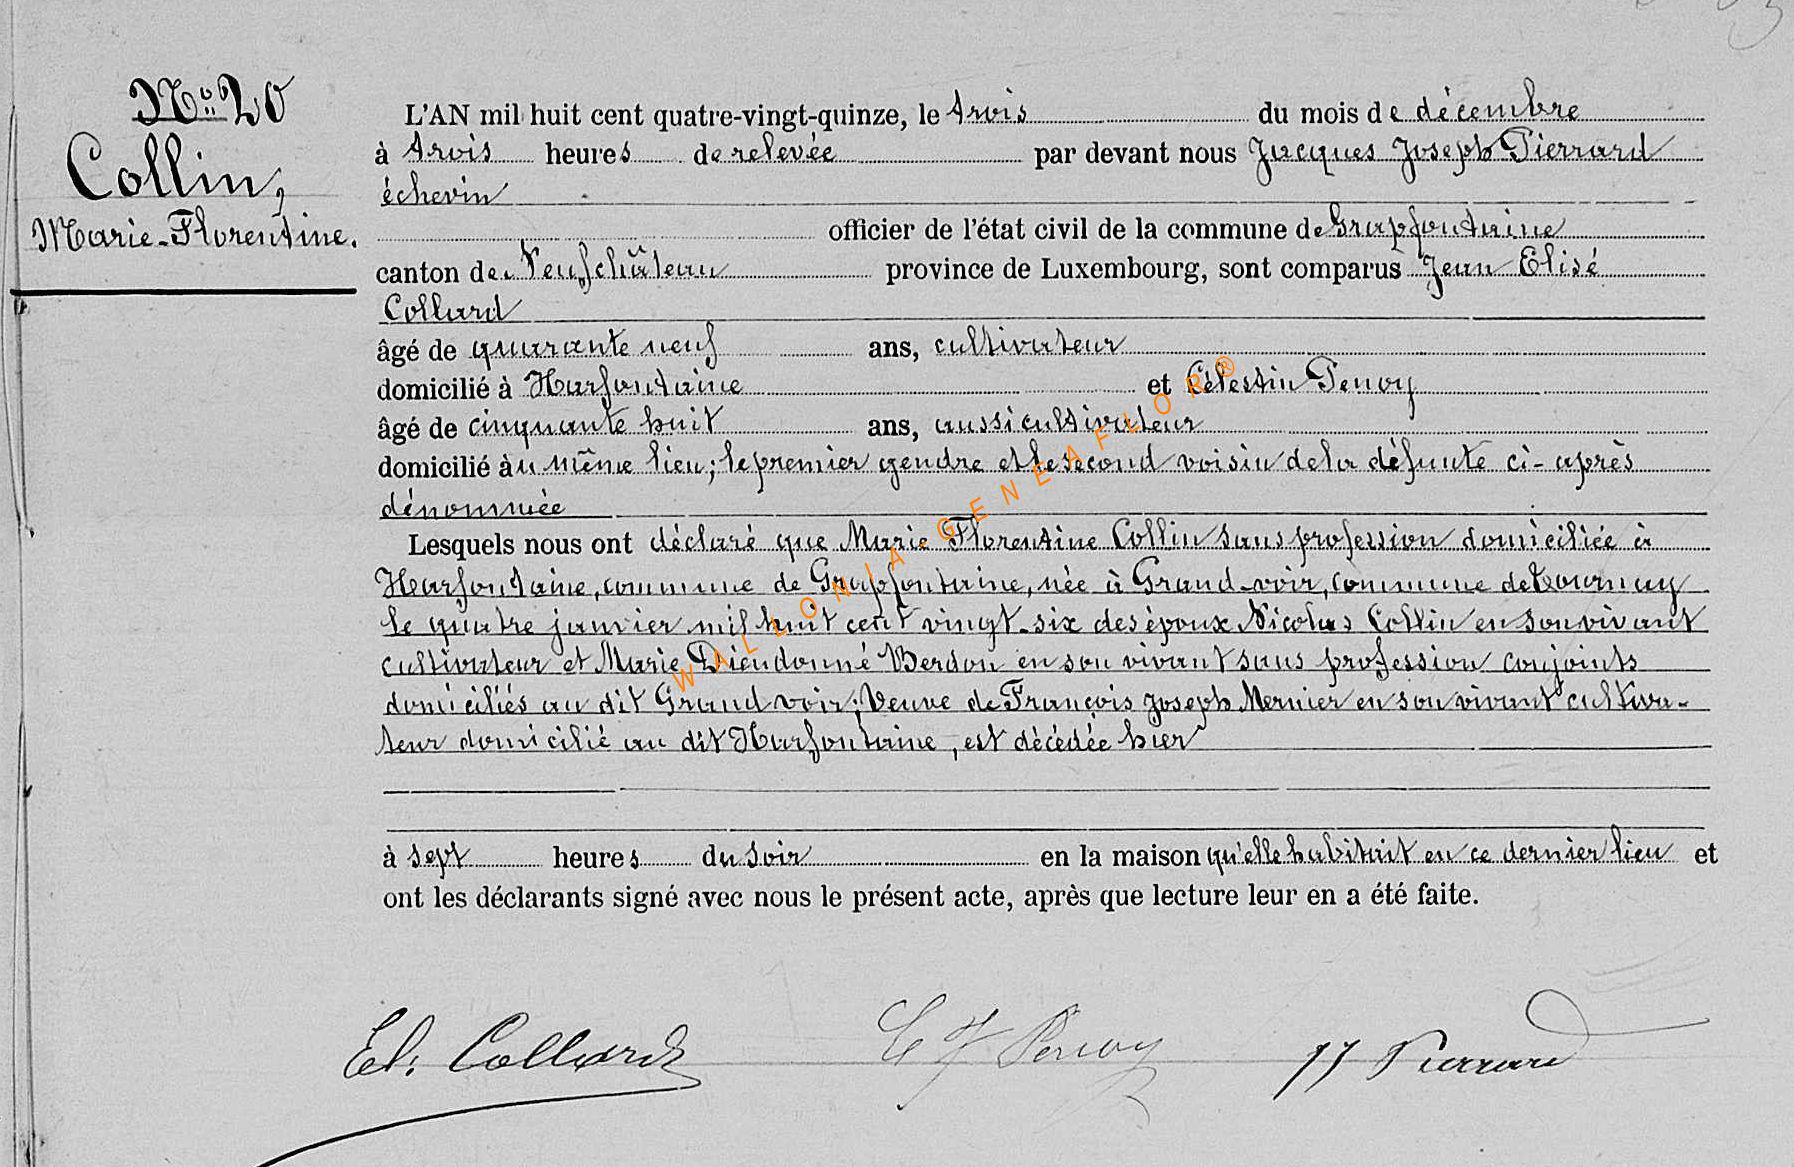 No 20
Collin,
Marie-Florentine.
L'AN mil huit cent quatre-vingt-quinze, le trois du mois de décembre
à trois heures de relevée par devant nous Jacques Joseph Pierrard
échevin
officier de l'état civil de la commune de Grapfontaine
canton de Neufchâteau province de Luxembourg, sont comparus Jean Elisé
Collard
âgé de quarante neuf ans, cultivateur
domicilié à Harfontaine et Célestin Penoy
âgé de cinquante huit ans, aussi cultivateur
domicilié àu même lieu; le premier gendre et le second voisin de la défunte ci-après
dénommée
Lesquels nous ont déclaré que Marie Florentine Collin sans profession domiciliée à
Harfontaine, commune de Grapfontaine, née à Grand-voir, commune de Tournay
le quatre janvier mil huit cent vingt-six des époux Nicolas Collin en son vivant
cultivateur et Marie Dieudonné Berdon en son vivant sans profession conjoints
domiciliés au dit Grand voir; Veuve de François Joseph Mernier en son vivant cultiva-
teur domicilié au dit Harfontaine, est décédée hier
à sept heures du soir en la maison qu'elle habitait en ce dernier lieu et
ont les déclarants signé avec nous le présent acte, après que lecture leur en a été faite.
El. Collard C J Penoy JJ Pierrard
WALLONIA GENEAFLOR®